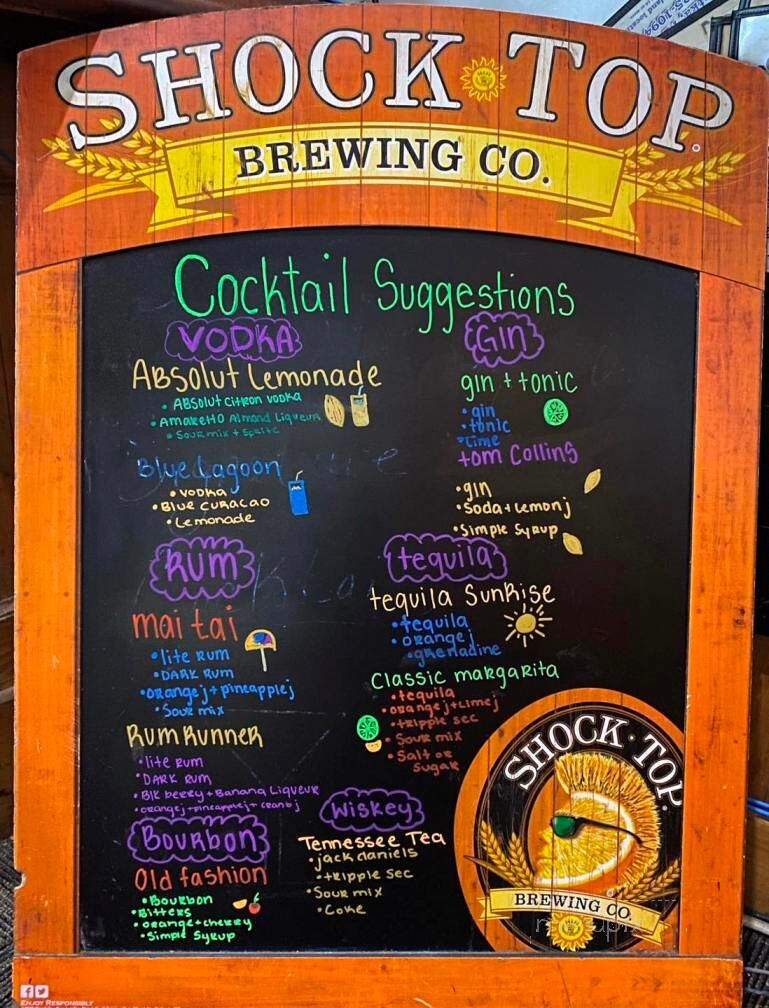 SHOCK TOP
BREWING CO.
Cocktail Suggestions
VODKA
Absolut Lemonade
• Absolut Citron vodka
• Amaretto Almond Liqueur
• Sour mix + Sprite
Blue Lagoon
• vodka
• Blue curacao
• Lemonade
Gin
gin + tonic
• gin
• tonic
• lime
tom Collins
• gin
• Soda + lemon j
• Simple Syrup
Rum
mai tai
• lite Rum
• DARK Rum
• orange j + pineapple j
• Sour mix
Rum Runner
• lite Rum
• DARK Rum
• Blk berry + Banana Liqueur
• orange j + pineapple j + cran b j
tequila
tequila Sunrise
• tequila
• orange j
• grenadine
Classic margarita
• tequila
• orange j + Lime j
• tripple sec
• Sour mix
• Salt or
Sugar
Bourbon
Old fashion
• Bourbon
• Bitters
• orange + cherry
• Simple Syrup
Wiskey
Tennessee Tea
• jack daniels
• tripple Sec
• Sour mix
• Coke
SHOCK·TOP
BREWING CO.
ENJOY RESPONSIBLY